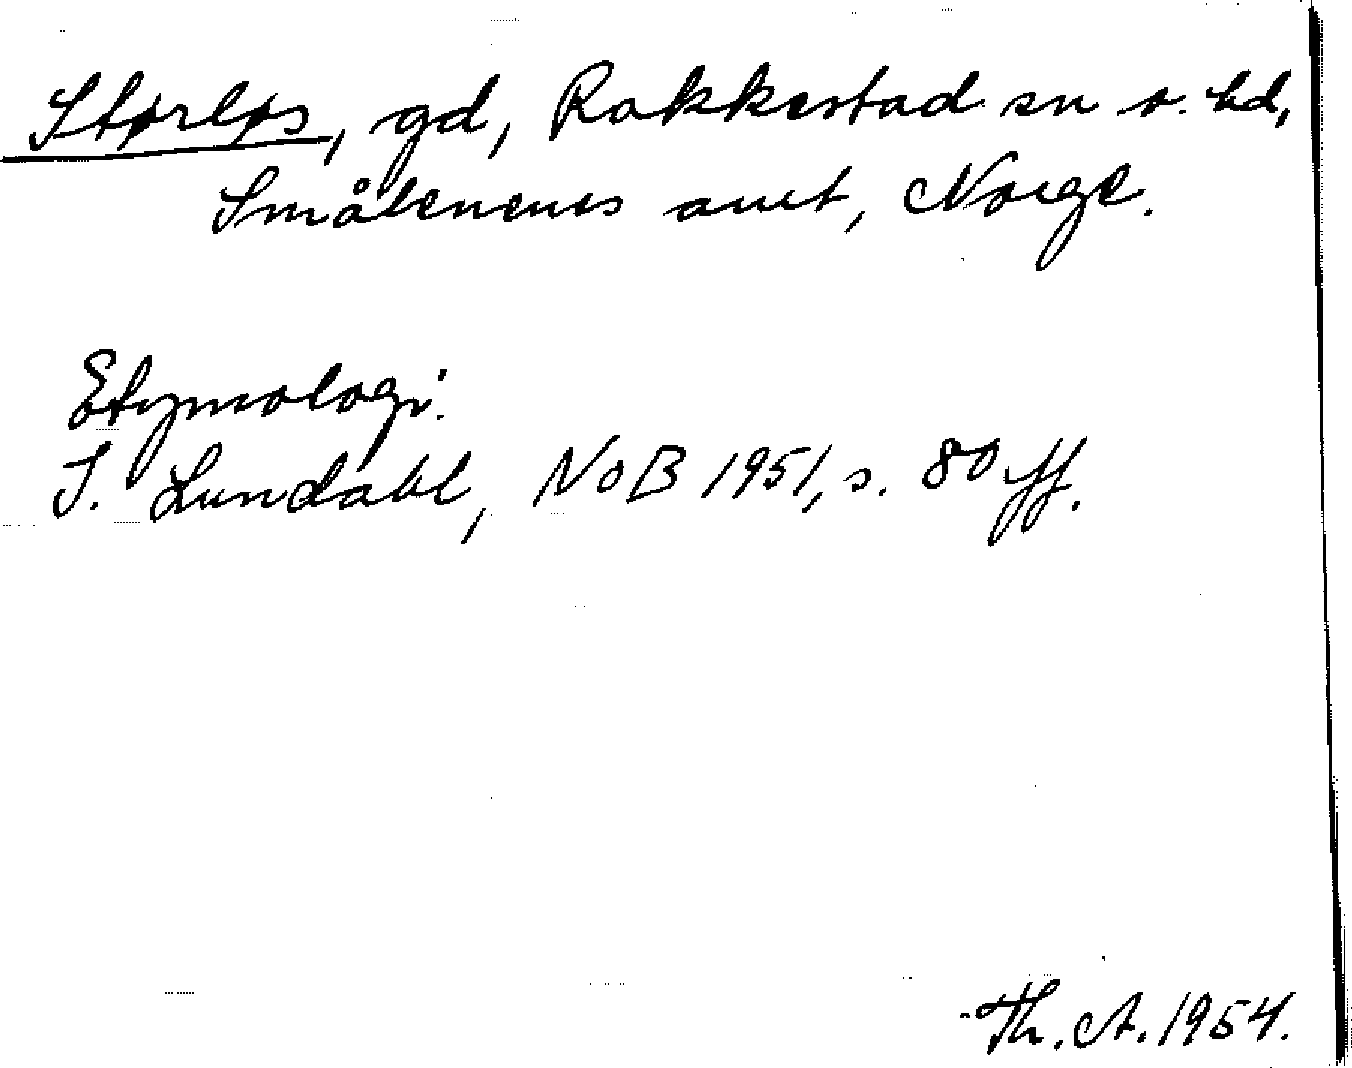 Størløs, gd, Rakkestad sn o. hd,
Smålenenes amt, Norge.
Etymologi.
I. Lundahl, NoB 1951, s. 80 ff.
Th. A. 1954.